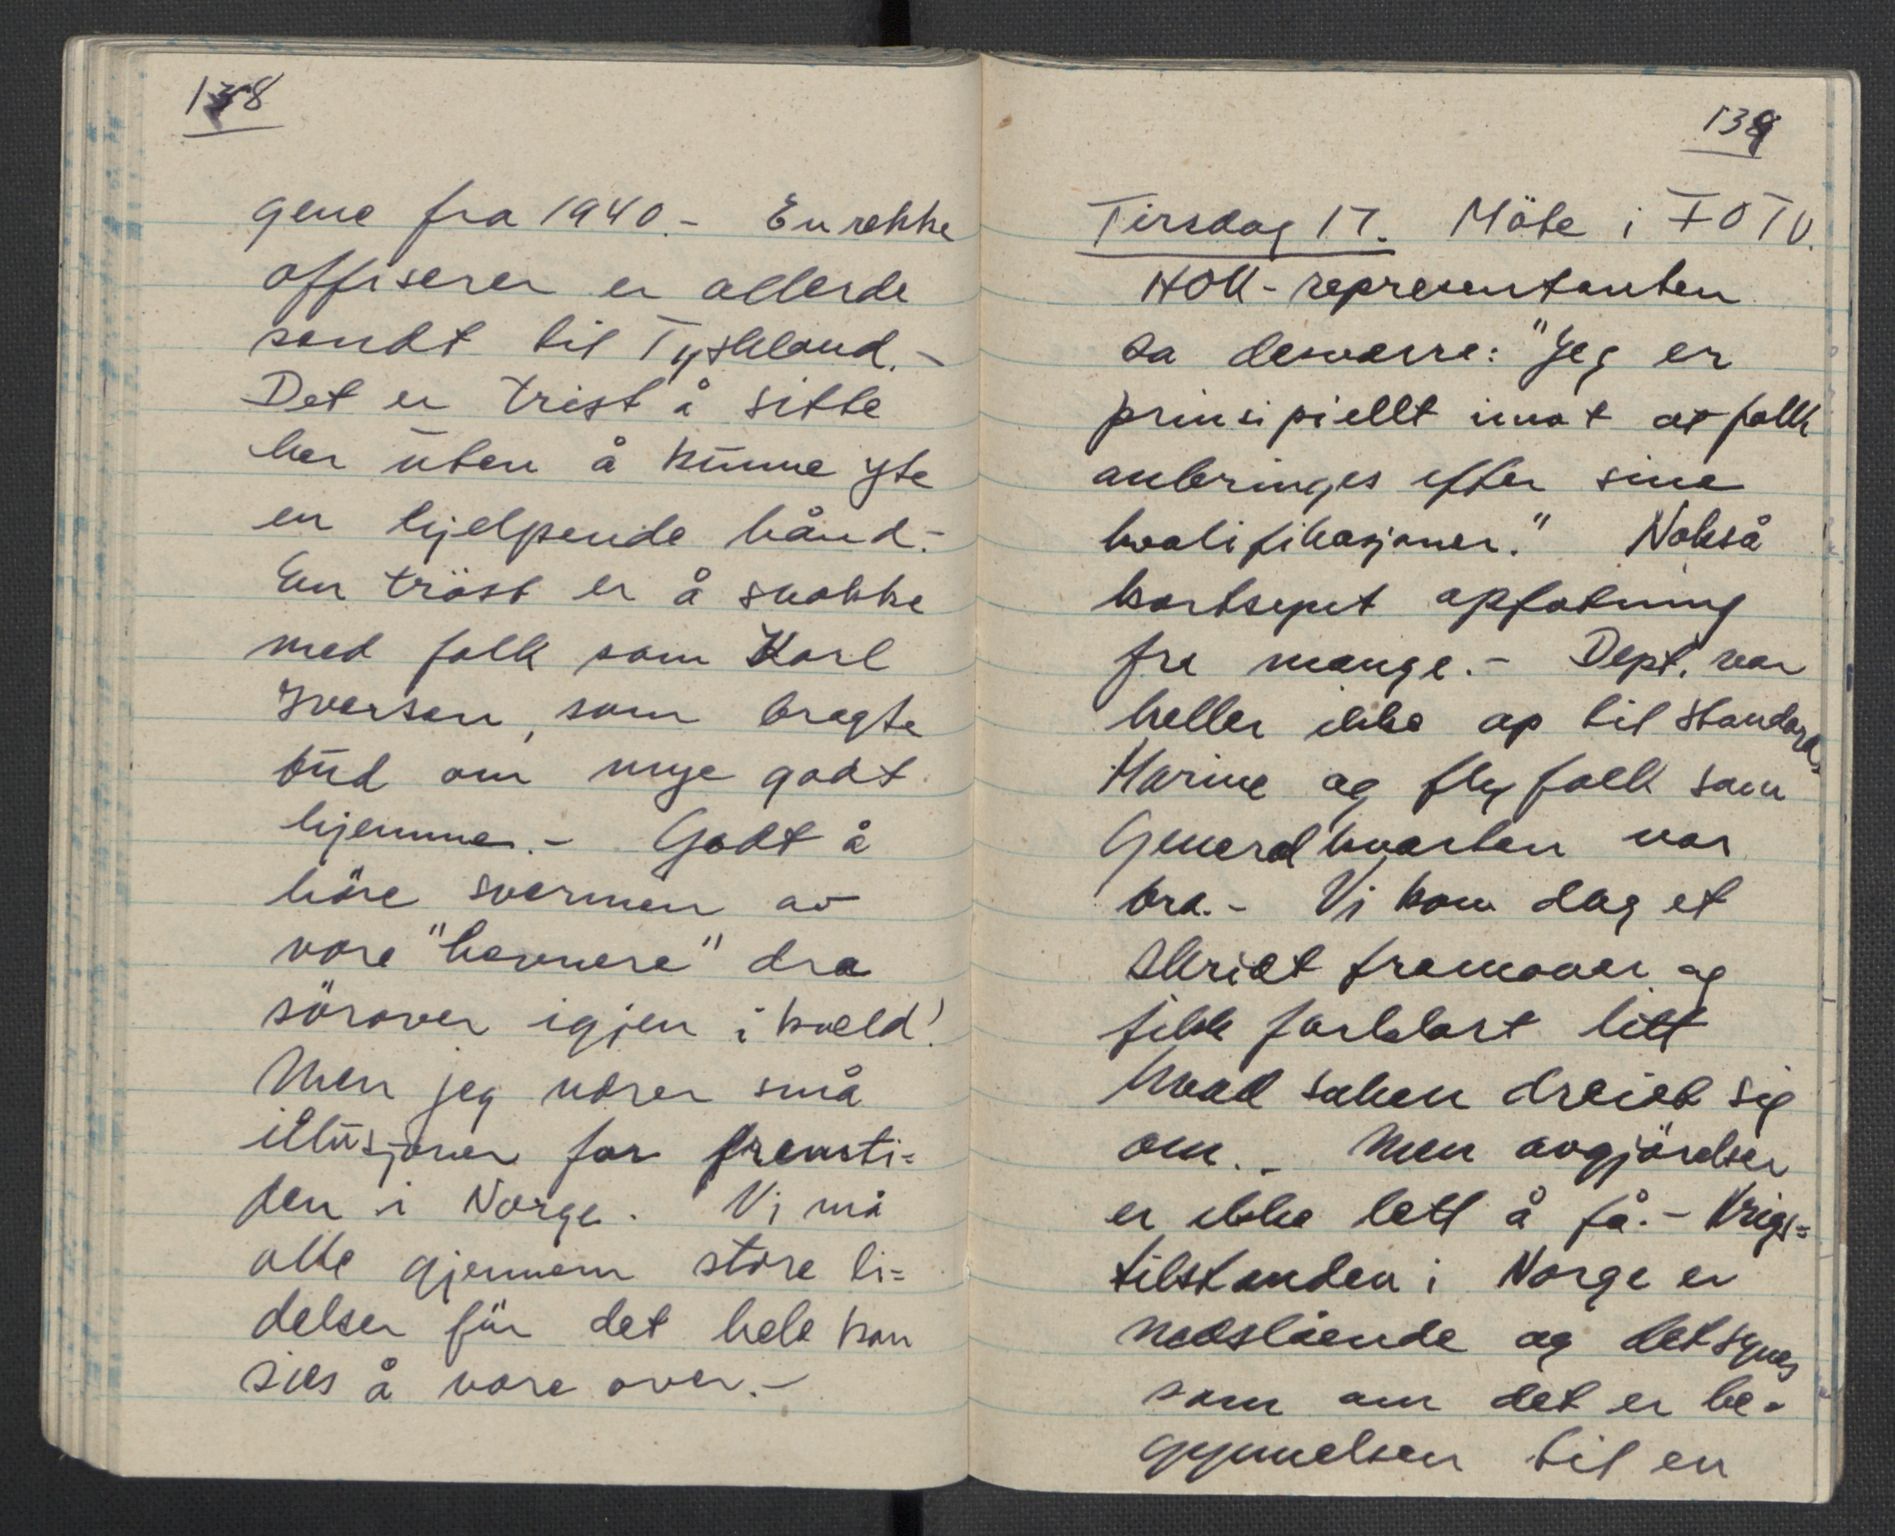 138
gene fra 1940.- En rekke
offiserer er allerde
sendt til Tyskland.-
Det er trist å sitte
her uten å kunne yte
en hjelpende hånd.-
En tröst er å snakke
med folk som Karl
Iversen, som bragte
bud om mye godt
hjemme.- Godt å
höre svermen av
våre "hevnere" dra
sörover igjen i kveld!
Men jeg nærer små
illusjoner for fremti=
den i Norge. Vi må
alle gjennem store li=
delser för det hele kan
sies å være over.-
139
Tirsdag 17. Möte i FOTU.
HOK-representanten
sa desværre: "Jeg er
prinsipiellt imot at folk
anbringes efter sine
kvalifikasjoner." Nokså
kortsynt opfatning
fra mange.- Dept. var
heller ikke op til standard.
Marine og flyfolk som
Generalkvarten var
bra.- Vi kom dog et
skridt fremover og
fikk forklart litt
hvad saken dreiet sig
om.- Men avgjörelser
er ikke lett å få.- Krigs=
tilstanden i Norge er
nedslående og det synes
som om det er be-
gynnelsen til en